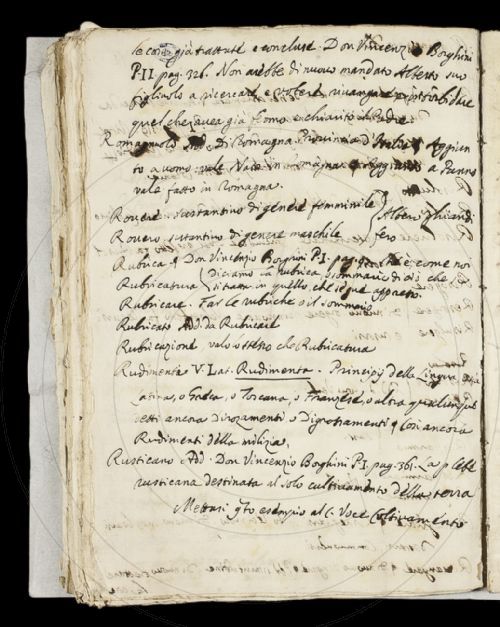 le cose già trattate e concluse. Don Vincenzio Borghini
P. II. pag. 326. Non arebbe di nuovo mandato Alberto suo
figliuolo a ricercare, e volere rivangare e intorbidare
quel che aveva già fermo e chiarito il Padre.
Romagnuolo Add. Di Romagna Provincia d'Italia. Aggiun
to a uomo vale Nato in Romagna e Aggiunto a Panno
vale fatto in Romagna.
Rovere sustantino di genere femminile } Albero ghiandi
Rovero sustantino di genere maschile fero
Rubrica Don Vincenzio Borghini P. I. pag. è come noi
Rubricatura Diciamo la rubrica o sommario di ciò che
si tratta in quello, che segue appresso.
Rubricare. Far le rubriche o il sommario
Rubricato Add. da Rubricare
Rubricazione vale o stesso che Rubricatura
Rudimente V. Lat. Rudimenta. Principj della Lingua
Latina, o Greca, o Toscana, o Franzese, o altra qualunque
detti ancora Dirozamenti o Digrossamenti Così ancora
Rudimenti della milizia.
Rusticano Add. Don Vincenzio Borghini P. I. pag. 361. La plebe
rusticana destinata al solo cultivamento della terra
Mettasi qto esempio al C. Voce Coltivamento